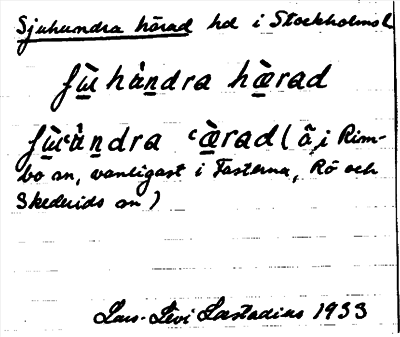 Sjuhundra härad hd i Stockholms l
ʃɯ̀ hȧndra hæ̀rad
ʃɯ̀ʿȧndra ʿæ̀rad (ä, i Rim-
bo sn, vanligast i Fasterna, Rö och
Skederids sn)
Lars-Levi Læstadius 1933